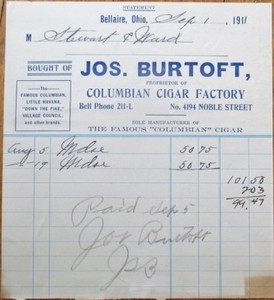 STATEMENT
Bellaire, Ohio, Sep 1, 1911
M Stewart & Ward
BOUGHT OF JOS. BURTOFT,
PROPRIETOR OF
The
FAMOUS COLUMBIAN,
LITTLE HAVANA,
"DOWN THE PIKE,"
VILLAGE COUNCIL,
and other brands.
COLUMBIAN CIGAR FACTORY
Bell Phone 211-L. No. 4194 NOBLE STREET
SOLE MANUFACTURER OF
THE FAMOUS "COLUMBIAN" CIGAR
Aug 5 Mdse 50 75
" 19 Mdse 50 75
101 50
2 03
99.47
Paid Sep 5
Jos Burtoft
JB